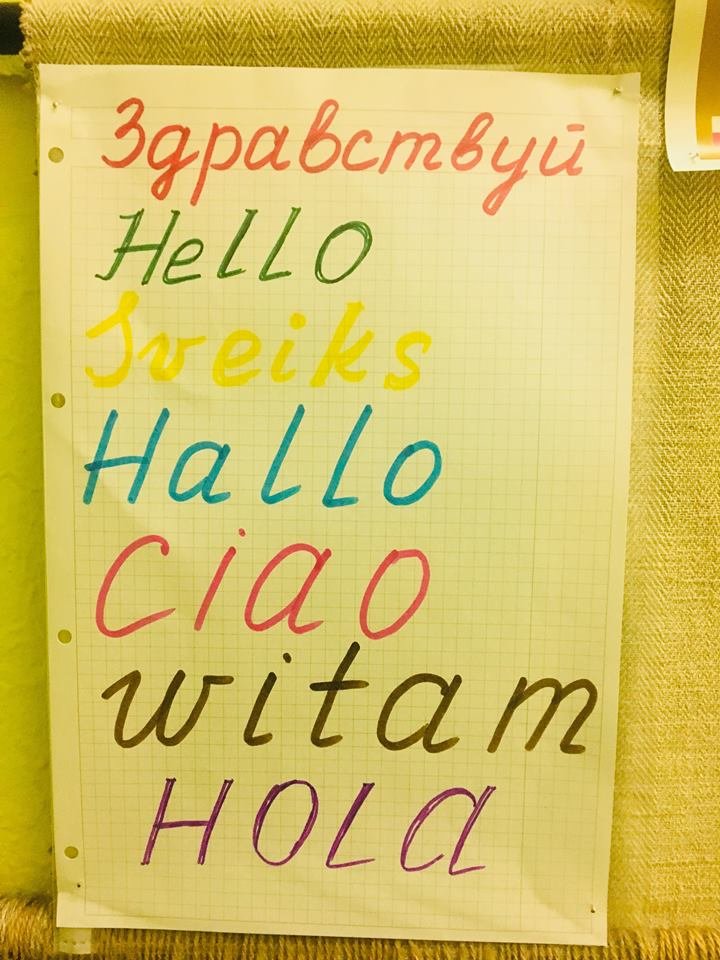 Здравствуй
Hello
Sveiks
Hallo
Ciao
witam
HOLA